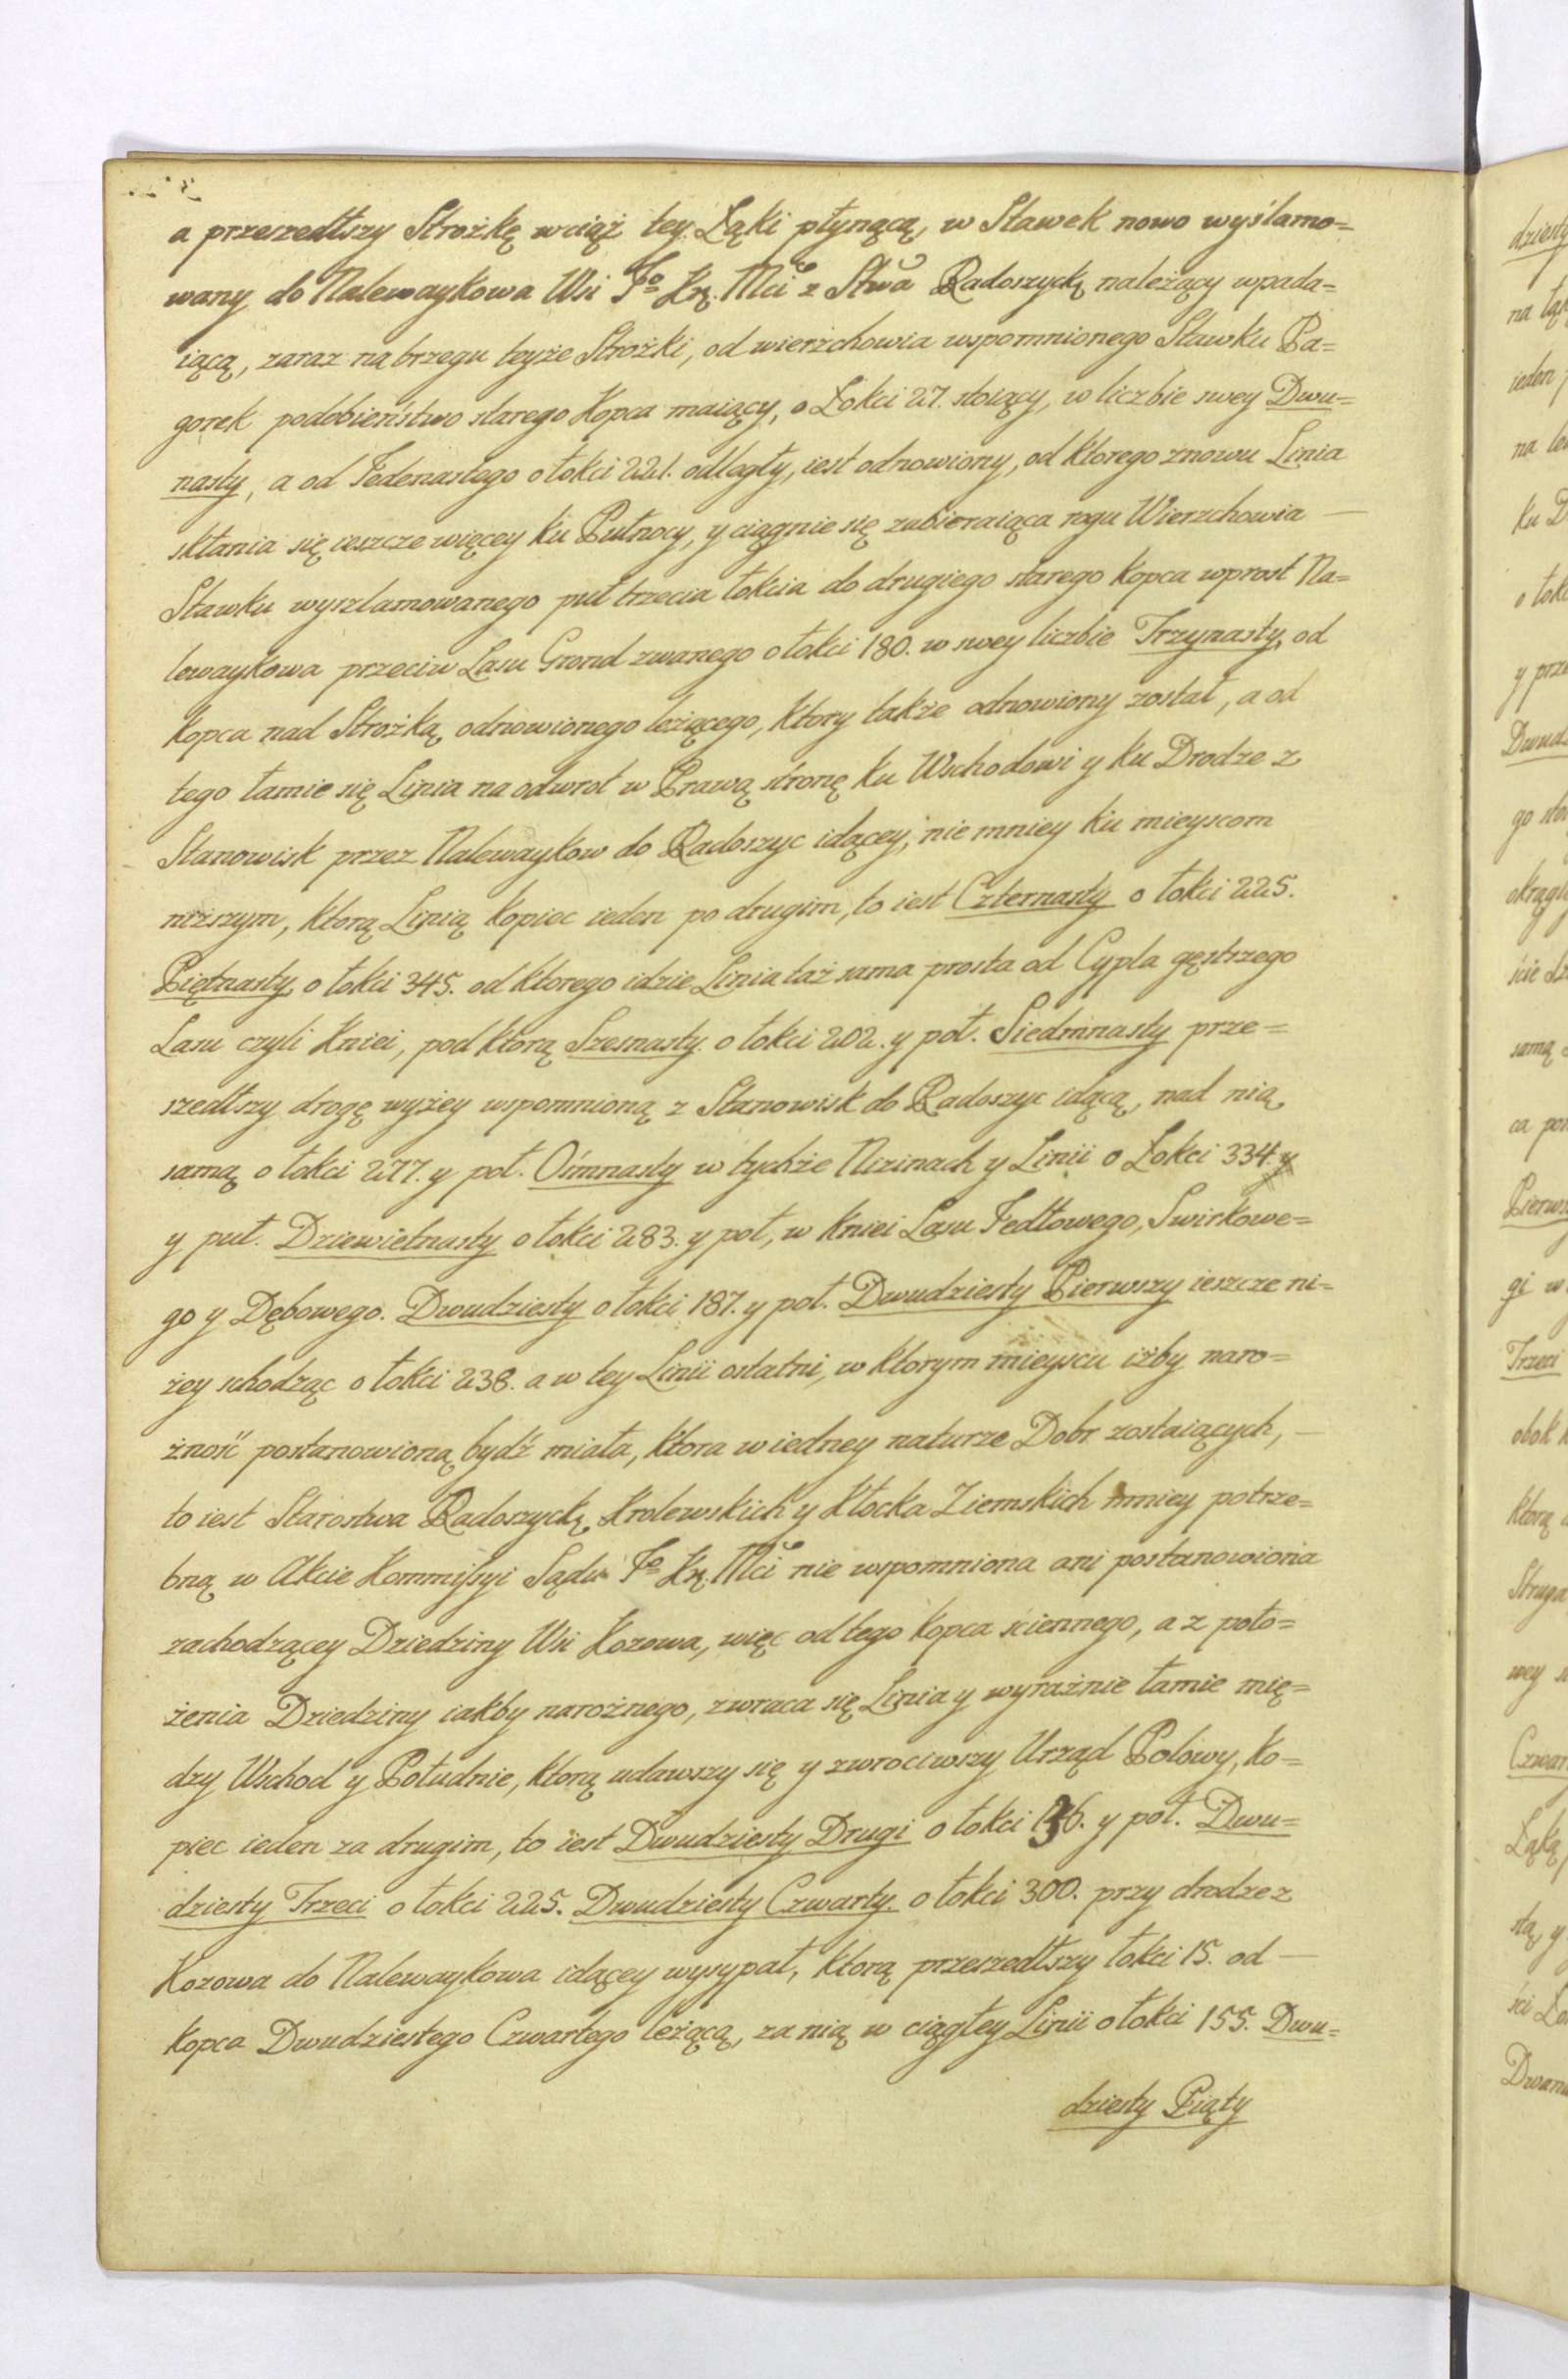 a przeszedłszy Strożkę wciąż tey Łąki płynącą, w Stawek nowo wyślamo=
wany do Nalewaykowa Wsi Jo Kr. Mci z Stwa Radoszyckę należący wpada=
iącą, zaraz na brzegu teyże Strożki, od wierzchowia wspomnionego Stawku Pa=
gorek podobieństwo starego Kopca maiący, o Łokci 27. stoiący, w liczbie swey Dwu=
nasty, a od Jedenastego o łokci 221. odległy, iest odnowiony, od ktorego znowu Linia
skłania się ieszcze więcey ku Pułnocy, y ciągnie się zabieraiąca rogu Wierzchowia —
Stawku wyszlamowanego puł trzecia łokcia do drugiego starego kopca wprost Na=
lewaykowa przeciw Lasu Grond zwanego o łokci 180. w swey liczbie Trzynasty, od
kopca nad Strożką odnowionego leżącego, ktory także odnowiony został, a od
tego łamie się Linia na odwrot w Prawą stronę ku Wschodowi y ku Drodze z
Stanowisk przez Nalewaykow do Radoszyc idącey, nie mniey ku mieyscom
niższym, ktorą Linią kopiec ieden po drugim, to iest Czternasty o łokci 225.
Piętnasty o łokci 345. od ktorego idzie Linia taż sama prosta od Cypla gęstrzego
Lasu czyli Kniei, pod ktorą Szesnasty o łokci 202. y poł. Siedmnasty prze=
szedłszy drogę wyżey wspomnioną z Stanowisk do Radoszyc idącą, nad nią
samą o łokci 277. y poł. Ośmnasty w tychże Nizinach y Linii o Łokci 334.
y puł. Dziewietnasty o łokci 283. y poł, w Kniei Lasu Jedłowego, Swirkowe=
go y Dębowego. Dwudziesty o łokci 187. y poł. Dwudziesty Pierwszy ieszcze ni=
żey schodząc o łokci 238. a w tey Linii ostatni, w ktorym mieyscu iżby naro=
żność postanowioną bydź miała, ktora w iedney naturze Dobr zostaiących, —
to iest Starostwa Radoszyckę Krolewskich y Kłocka Ziemskich mniey potrze=
bną w Akcie Kommissyi Sądu Jo Kr. Mci nie wspomniona ani postanowiona
zachodzącey Dziedziny Wsi Kozowa, więc od tego kopca sciennego, a z poło=
żenia Dziedziny iakby narożnego, zwraca się Linia y wyraźnie łamie mię=
dzy Wschod y Południe, ktorą udawszy się y zwrociwszy Urząd Polowy, ko=
piec ieden za drugim, to iest Dwudziesty Drugi o łokci 136. y poł. Dwu=
dziesty Trzeci o łokci 225. Dwudziesty Czwarty o łokci 300. przy drodze z
Kozowa do Nalewaykowa idącey wysypał, ktorą przeszedłszy łokci 15. od —
kopca Dwudziestego Czwartego leżącą, za nią w ciągłey Linii o łokci 155. Dwu=
dziesty Piąty